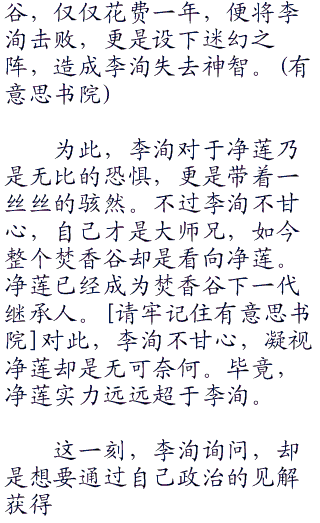 谷，仅仅花费一年，便将李
洵击败，更是设下迷幻之
阵，造成李洵失去神智。(有
意思书院)
为此，李洵对于净莲乃
是无比的恐惧，更是带着一
丝丝的骇然。不过李洵不甘
心，自己才是大师兄，如今
整个焚香谷却是看向净莲。
净莲已经成为焚香谷下一代
继承人。[请牢记住有意思书
院]对此，李洵不甘心，凝视
净莲却是无可奈何。毕竟，
净莲实力远远超于李洵。
这一刻，李洵询问，却
是想要通过自己政治的见解
获得